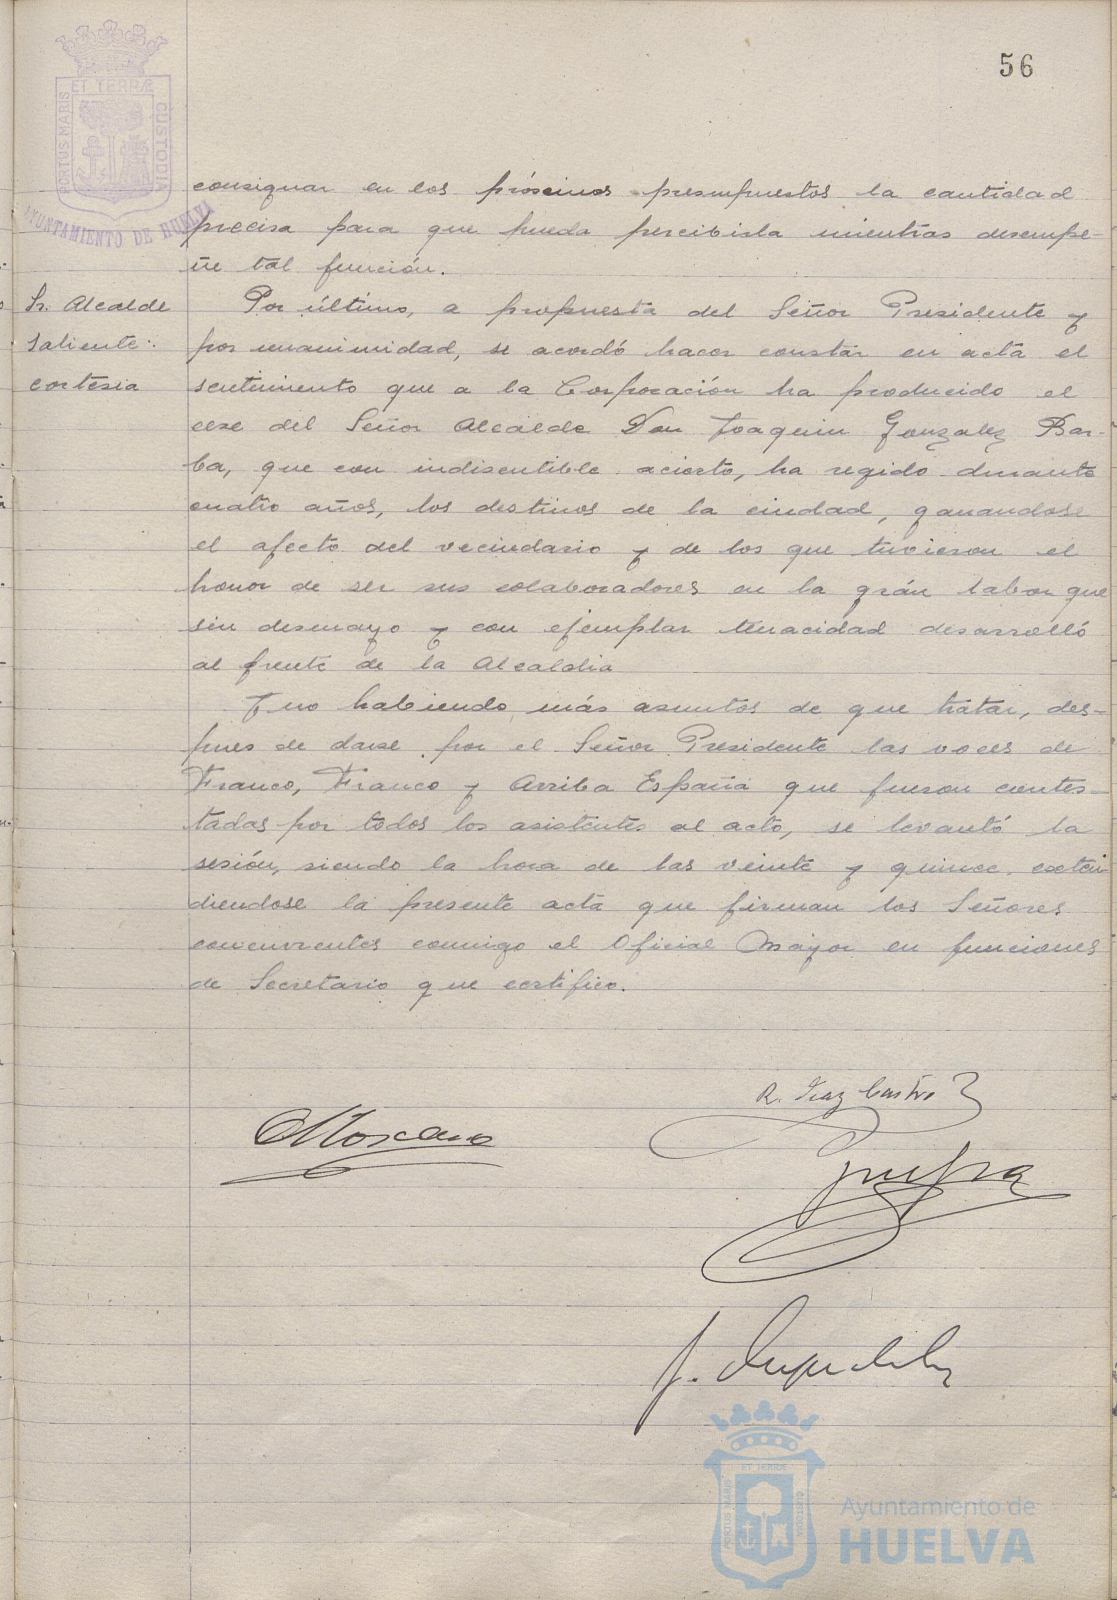 56
PORTUS MARIS
ET TERRÆ
CUSTODIA
AYUNTAMIENTO DE HUELVA
consignar en los próscinos presupuestos la cantidad
precisa para que pueda percibirla mientras desempe-
ñe tal función.
Sr. Alcalde
saliente:
cortesia
Por último, a propuesta del Señor Presidente y
por unanimidad, se acordó hacer constar en acta el
sentimiento que a la Corporación ha producido el
cese del Señor Alcalde Don Joaquin Gonzalez Bar-
ba, que con indiscutible acierto, ha regido durante
cuatro años, los destinos de la ciudad, ganandose
el afecto del vecindario y de los que tuvieron el
honor de ser sus colaboradores en la grán labor que
sin desmayo y con ejemplar tenacidad desarrolló
al frente de la Alcaldia
Y no habiendo más asuntos de que tratar, des-
pues de darse por el Señor Presidente las voces de
Franco, Franco y Arriba España que fueron contes-
tadas por todos los asistentes al acto, se levantó la
sesión, siendo la hora de las veinte y quince, exten
diendose la presente acta que firman los Señores
concurrentes conmigo el Oficial Mayor en funciones
de Secretario que certifico.
R. Diaz Castro
Moscano
J.
PORTUS MARIS
ET TERRÆ
CUSTODIA
Ayuntamiento de
HUELVA